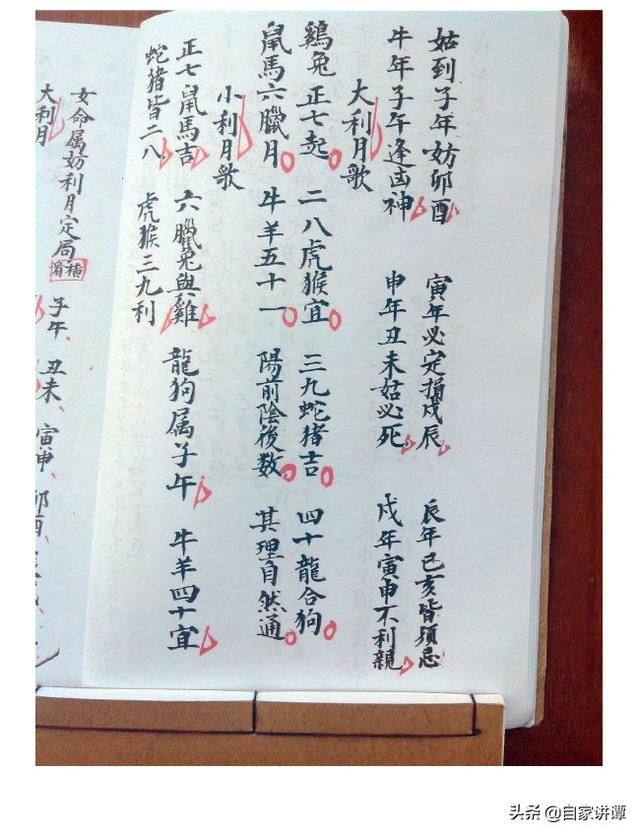 姑到子年妨卯酉 寅年必定損戌辰 辰年巳亥皆須忌
牛年子午逢凶神 申年丑未姑必死 戌年寅申不利親
大利月歌
鷄兔正七起 二八虎猴宜 三九蛇猪吉 四十龍合狗
鼠馬六臘月 牛羊五十一 陽前陰後数 其理自然通
小利月歌
正七鼠馬吉 六臘兔與雞 龍狗属子午 牛羊四十宜
蛇猪皆二八 虎猴三九利
女命属妨利月定局 橫看 子午、丑未、寅申、卯酉、
大利月
头条 @自家讲谭